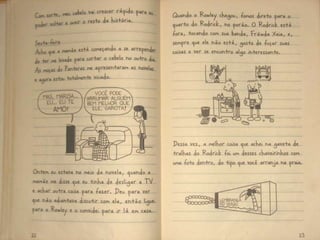 Com sorte, meu cabelo vai crescer rápido para eu
poder voltar a usar o resto da história.
Sexta-feira
Acho que a mamãe está começando a se arrepender
de ter me levado para cortar o cabelo no outro dia.
As moças do Pontaras me apresentaram as novelas,
e agora estou totalmente viciado.
MAS, MARISA,
EU... EU TE
AMO!
VOCÊ PODE
ARRUMAR ALGUÉM
BEM MELHOR QUE
ELE, GAROTA!
Ontem eu estava no meio da novela, quando a
mamãe me disse que eu tinha de desligar a TV
e achar outra coisa para fazer. Deu para ver
que não adiantava discutir com ela, então liguei
para o Rowley e o convidei para ir lá em casa.
22
Quando o Rowley chegou, fomos direto para o
quarto do Rodrick, no porão. O Rodrick está
fora, tocando com sua banda, Fräwda Xeia, e,
sempre que ele não está, gosto de fuçar suas
coisas e ver se encontro algo interessante.
Dessa vez, a melhor coisa que achei na gaveta de
tralhas do Rodrick foi um desses chaveirinhos com
uma foto dentro, do tipo que você arranja na praia.
23